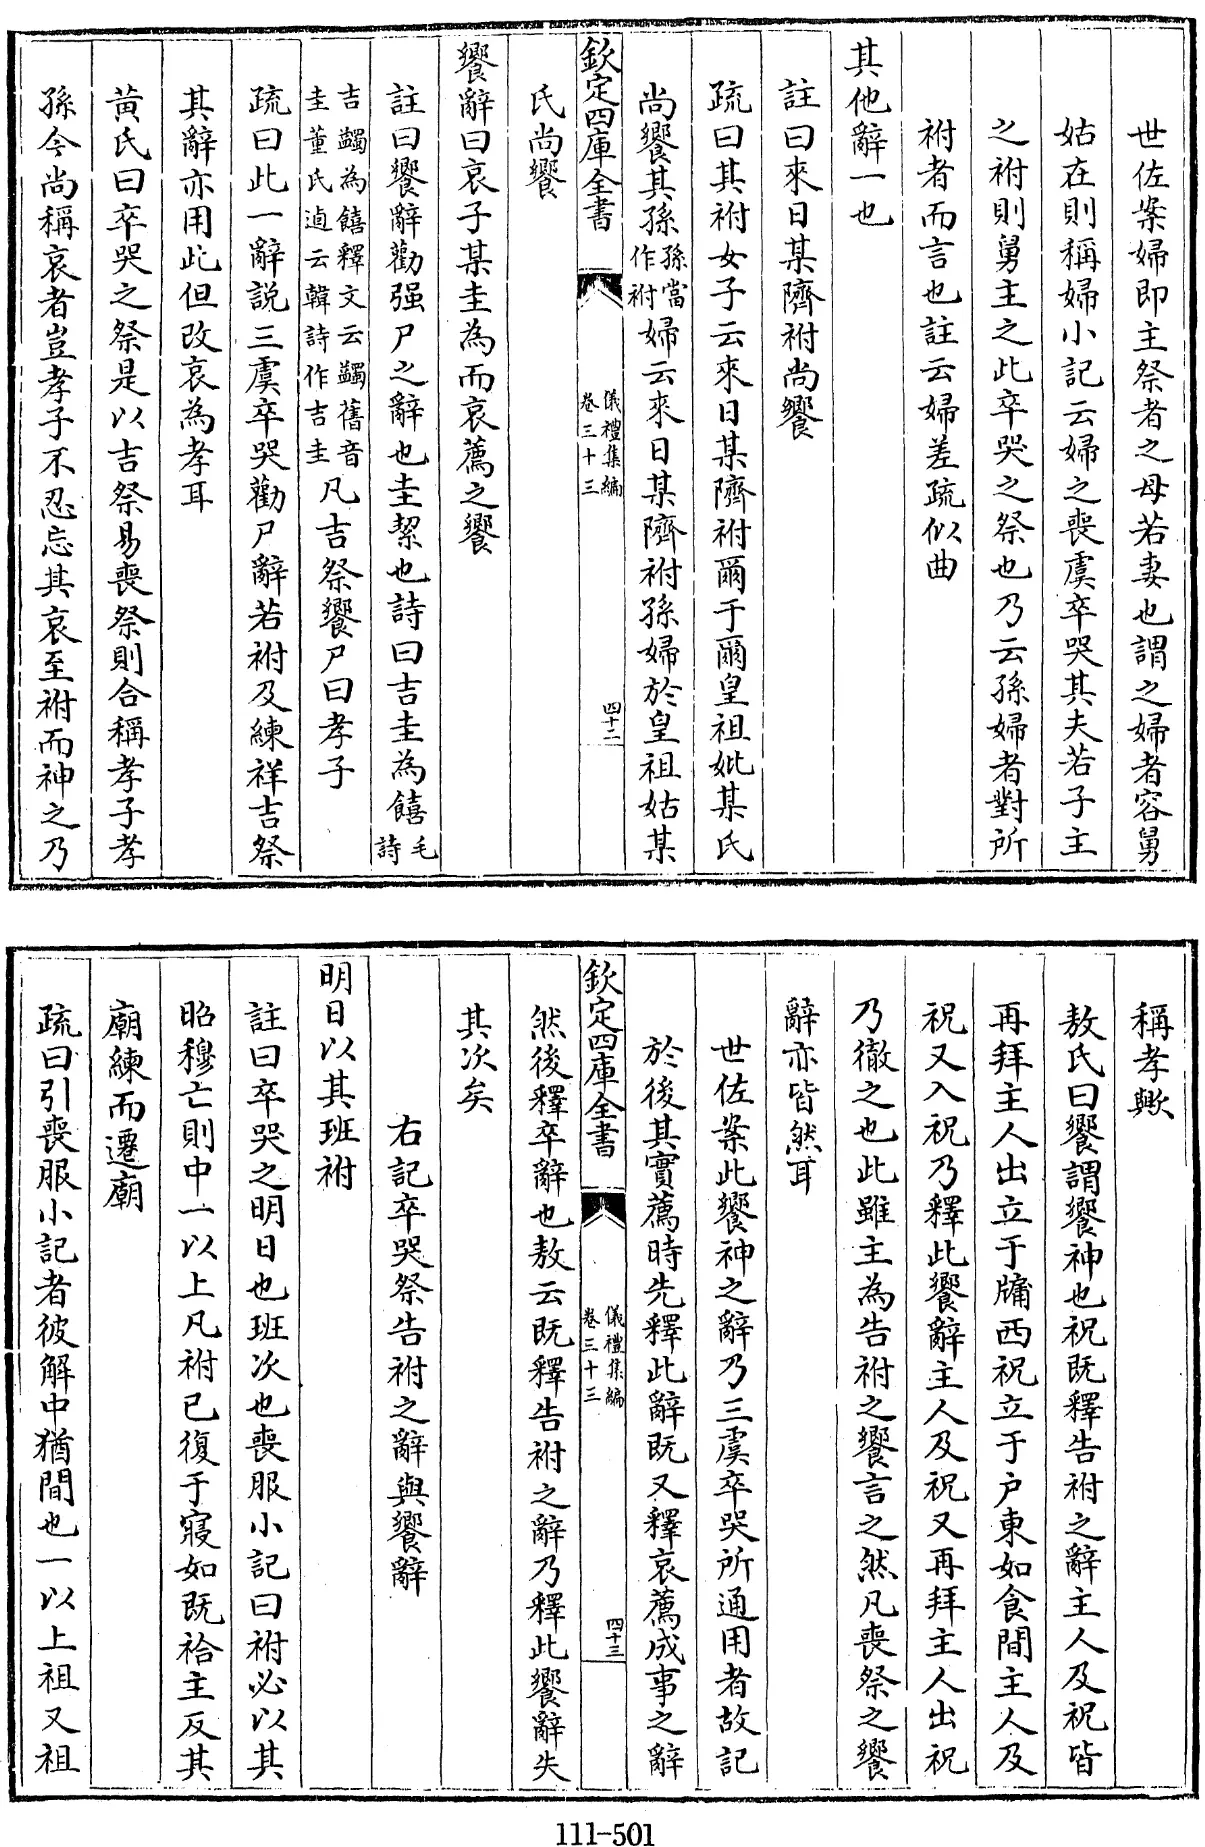 世佐案婦即主祭者之母若妻也謂之婦者容舅
姑在則稱婦小記云婦之喪虞卒哭其夫若子主
之祔則舅主之此卒哭之祭也乃云孫婦者對所
祔者而言也註云婦差疏似曲
其他辭一也
註曰來日某隮祔尚饗
疏曰其祔女子云來日某隮祔爾于爾皇祖妣某氏
尚饗其孫孫當作祔婦云來日某隮祔孫婦於皇祖姑某
欽定四庫全書
儀禮集編
卷三十三
四十二
氏尚饗
饗辭曰哀子某圭為而哀薦之饗
註曰饗辭勸强尸之辭也圭絜也詩曰吉圭為饎毛詩
吉蠲為饎釋文云蠲舊音圭董氏逌云韓詩作吉圭凡吉祭饗尸曰孝子
疏曰此一辭説三虞卒哭勸尸辭若祔及練祥吉祭
其辭亦用此但改哀為孝耳
黄氏曰卒哭之祭是以吉祭易喪祭則合稱孝子孝
孫今尚稱哀者豈孝子不忍忘其哀至祔而神之乃
稱孝歟
敖氏曰饗謂饗神也祝既釋告祔之辭主人及祝皆
再拜主人出立于牖西祝立于户東如食間主人及
祝又入祝乃釋此饗辭主人及祝又再拜主人出祝
乃徹之也此雖主為告祔之饗言之然凡喪祭之饗
辭亦皆然耳
世佐案此饗神之辭乃三虞卒哭所通用者故記
於後其實薦時先釋此辭既又釋哀薦成事之辭
欽定四庫全書
儀禮集編
卷三十三
四十三
然後釋卒辭也敖云既釋告祔之辭乃釋此饗辭失
其次矣
右記卒哭祭告祔之辭與饗辭
明日以其班祔
註曰卒哭之明日也班次也喪服小記曰祔必以其
昭穆亡則中一以上凡祔已復于寢如既祫主反其
廟練而遷廟
疏曰引喪服小記者彼解中猶間也一以上祖又祖
111-501